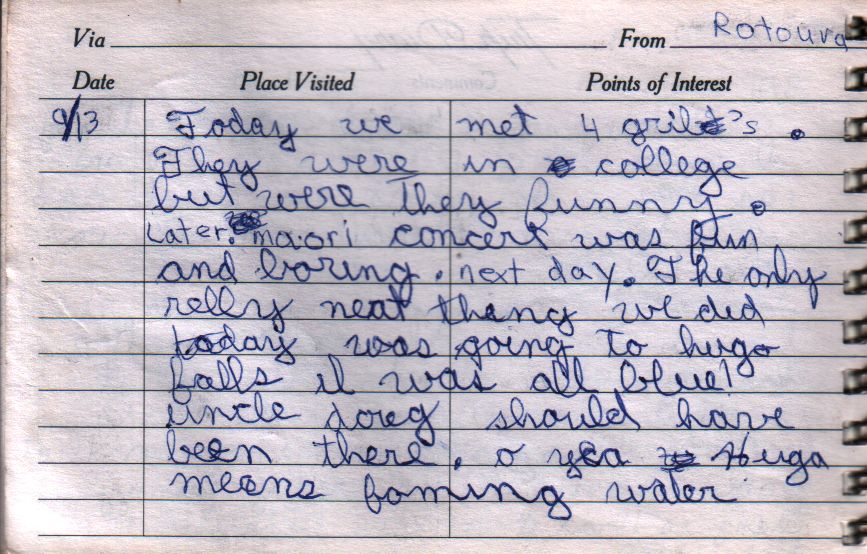 Via From Rotourg
Date Place Visited Points of Interest
9/13 Today we met 4 gril's.
They were in college
but were they funny.
Later. maori concert was fun
and boring. next day. The only
relly neat thing we did
today was going to huga
falls it was all blue!
uncle doug should have
been there. o yea Huga
means foming water